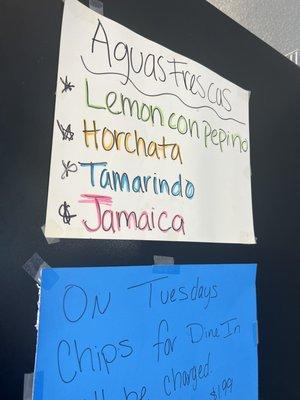 Aguas Frescas
* Lemon con Pepino
* Horchata
* Tamarindo
* Jamaica
On Tuesdays
Chips for Dine In
be charged.
$1.99